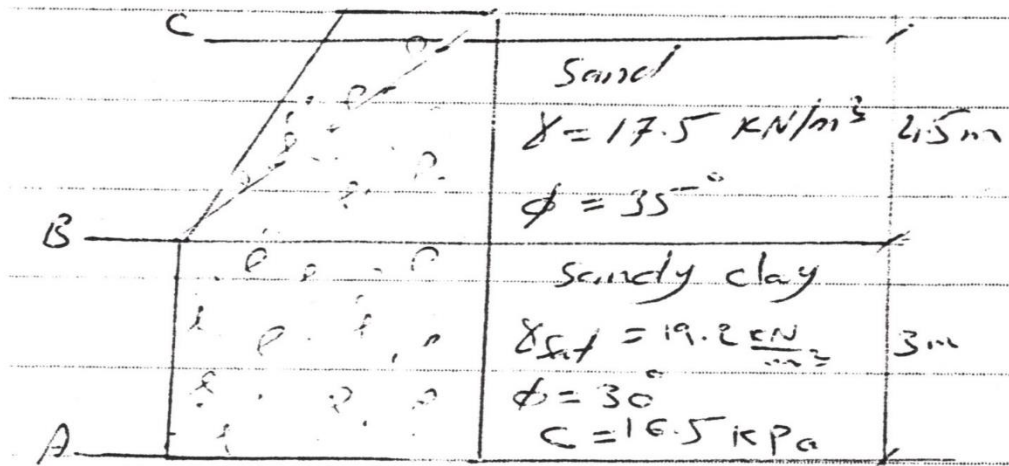 C
Sand
γ = 17.5 KN/m³ 4.5m
φ = 35°
B
Sandy clay
γsat = 19.2 KN/m³ 3m
φ = 30°
C = 16.5 KPa
A